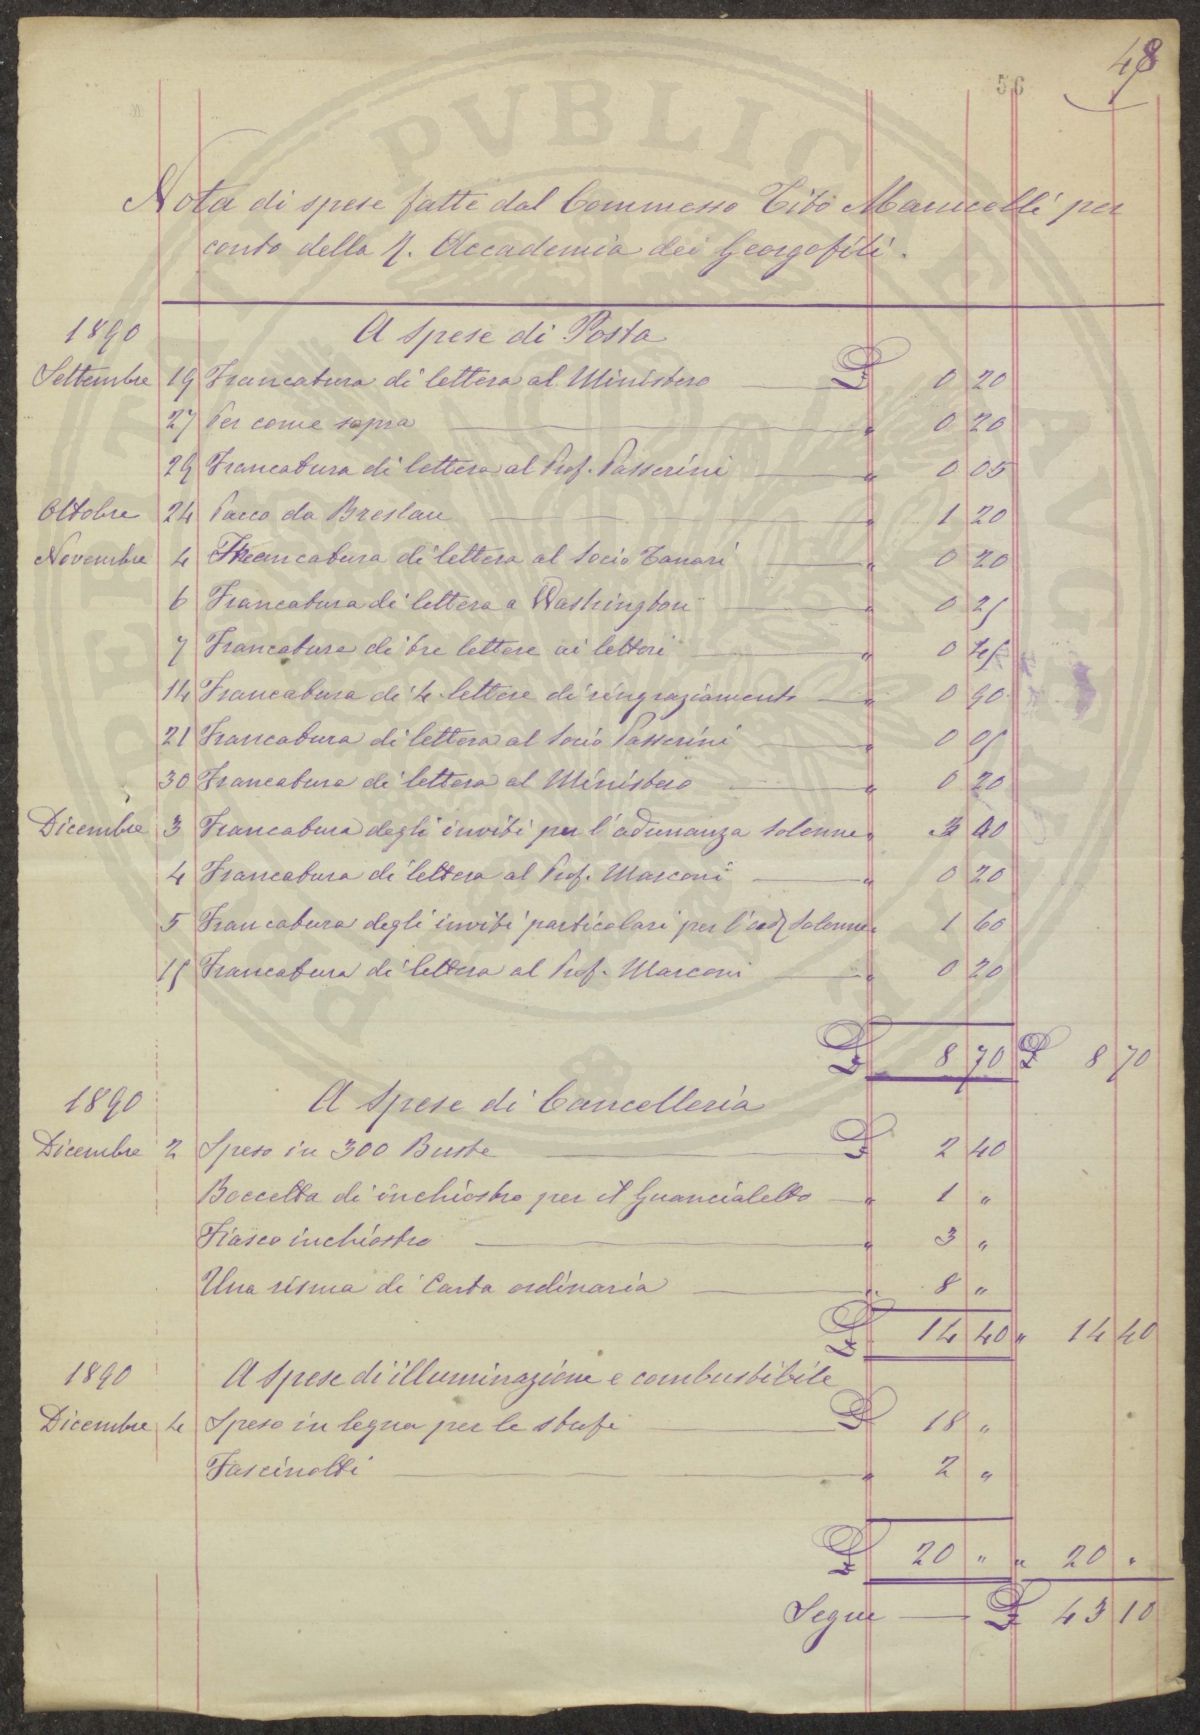 48
56
Nota di spese fatte dal Commesso Tito Marucelli per
conto della R. Accademia dei Georgofili.
1890 A Spese di Posta
Settembre 19 Francatura di lettera al Ministero £ 0 20
27 Per come sopra " 0 20
29 Francatura di lettera al Prof. Passerini " 0 05
Ottobre 24 Pacco da Breslau " 1 20
Novembre 4 Francatura di lettera al Socio Tanari " 0 20
6 Francatura di lettera a Washington " 0 25
7 Francatura di tre lettere ai lettori " 0
14 Francatura di 4 lettere di ringraziamento " 0 90
21 Francatura di lettera al Socio Passerini " 0 05
30 Francatura di lettera al Ministero " 0 20
Dicembre 3 Francatura degli inviti per l'adunanza solenne "
4 Francatura di lettera al Prof. Marconi " 0 20
5 Francatura degli inviti particolari per l'ad Solenne " 1 60
15 Francatura di lettera al Prof. Marconi " 0 20
£ 8 70 £ 8 70
1890 A Spese di Cancelleria
Dicembre 2 Speso in 300 Buste £ 2 40
Boccetta di inchiostro per il Guancialetto " 1 "
Fiasco inchiostro " 3 "
Una risma di Carta ordinaria " 8 "
£ 14 40 " 14 40
1890 A Spese di illuminazione e combustibile
Dicembre 4 Speso in legna per le stufe £ 18 "
Fascinotti " 2 "
£ 20 " " 20 "
Segue £ 43 10